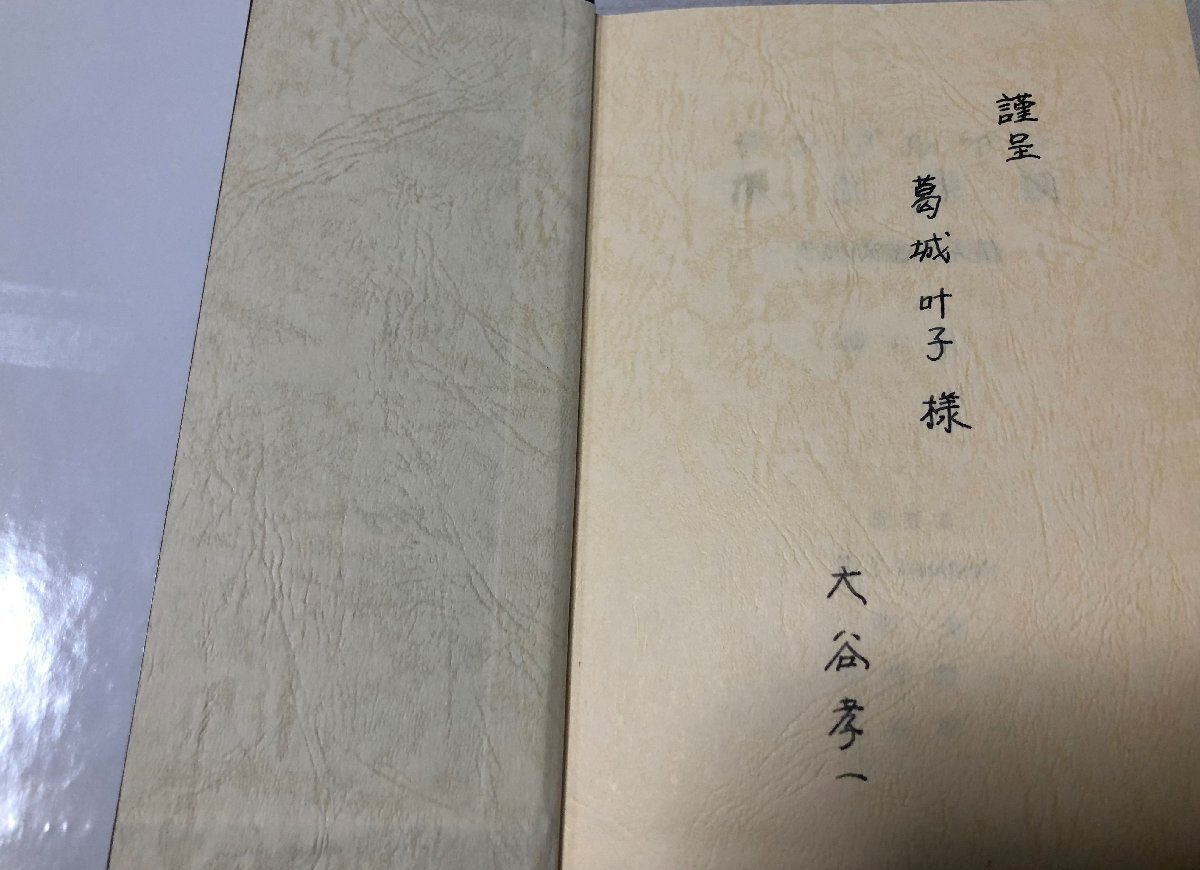 謹呈
葛城叶子様
大谷孝一